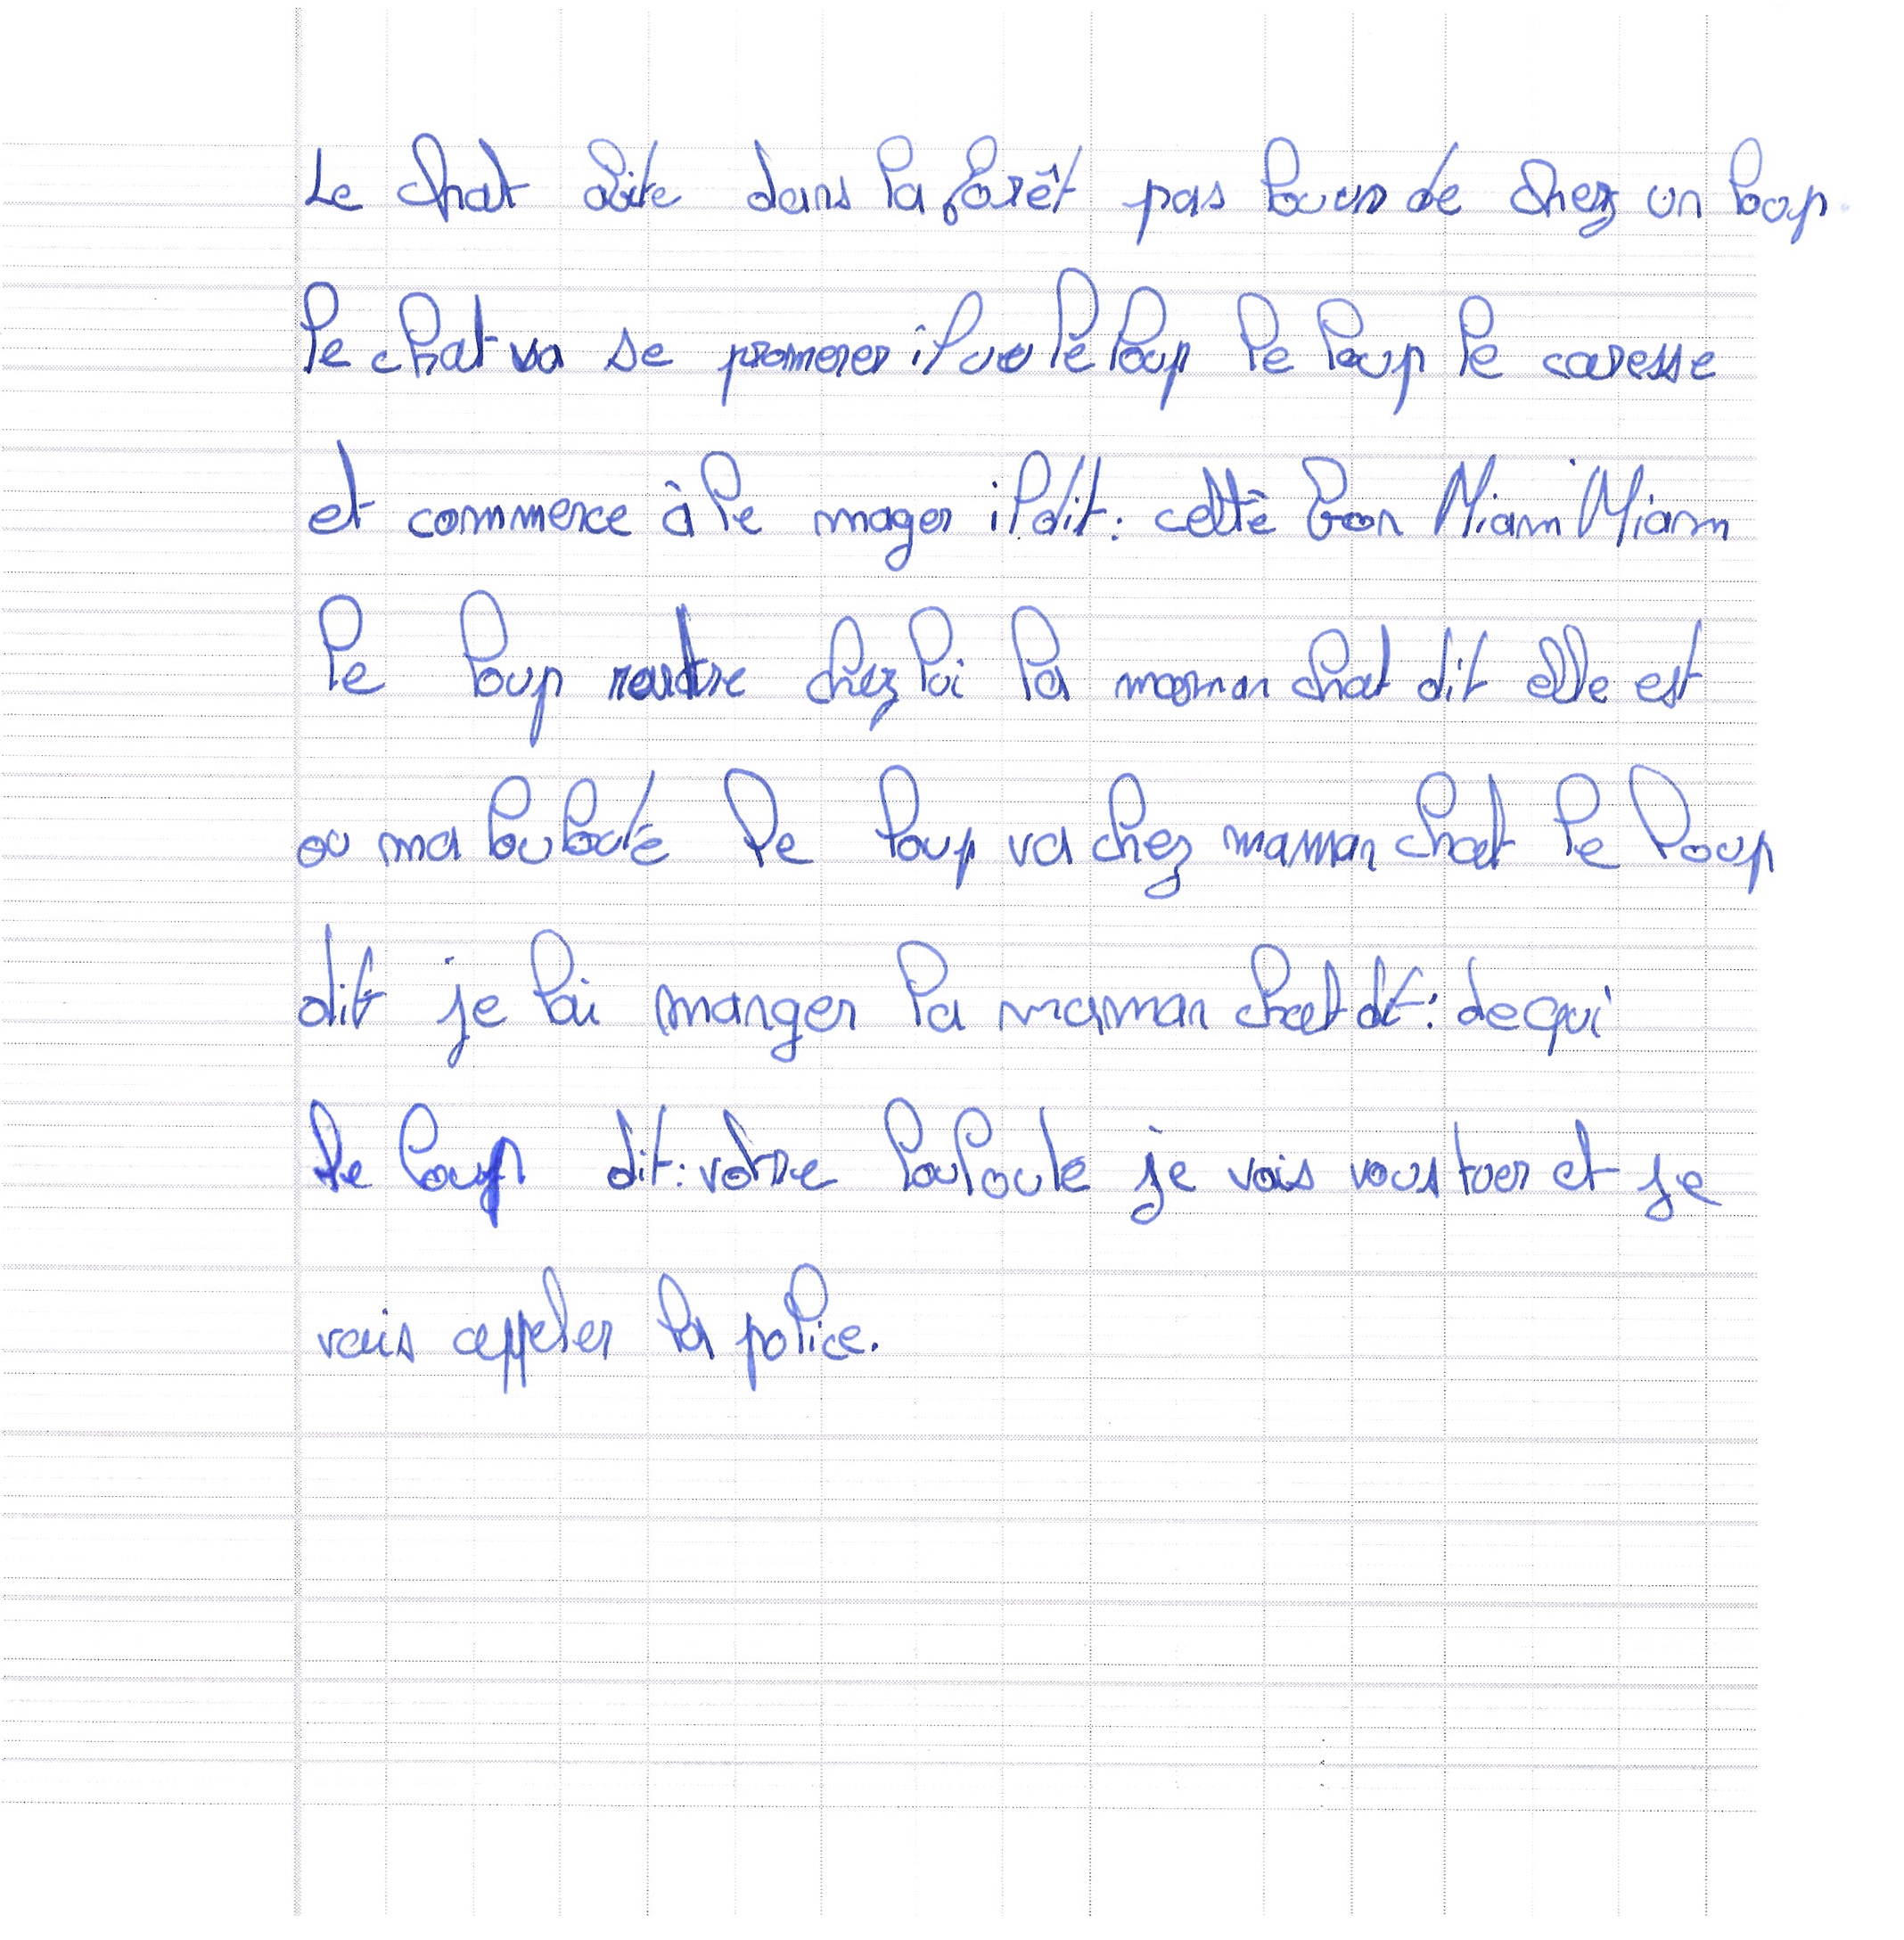 Le chat abite dans la forêt pas louin de chez un loup.
le chat va se promener il voi le loup le loup le caresse
et commence à le mager il dit : cette bon Miam Miam
le loup rentre chez lui la maman chat dit elle est
ou ma louloute le loup va chez maman chat le loup
dit je lai manger la maman chat dit : de qui
le loup dit : votre louloute je vais vous tuer et je
vais appeler la police.